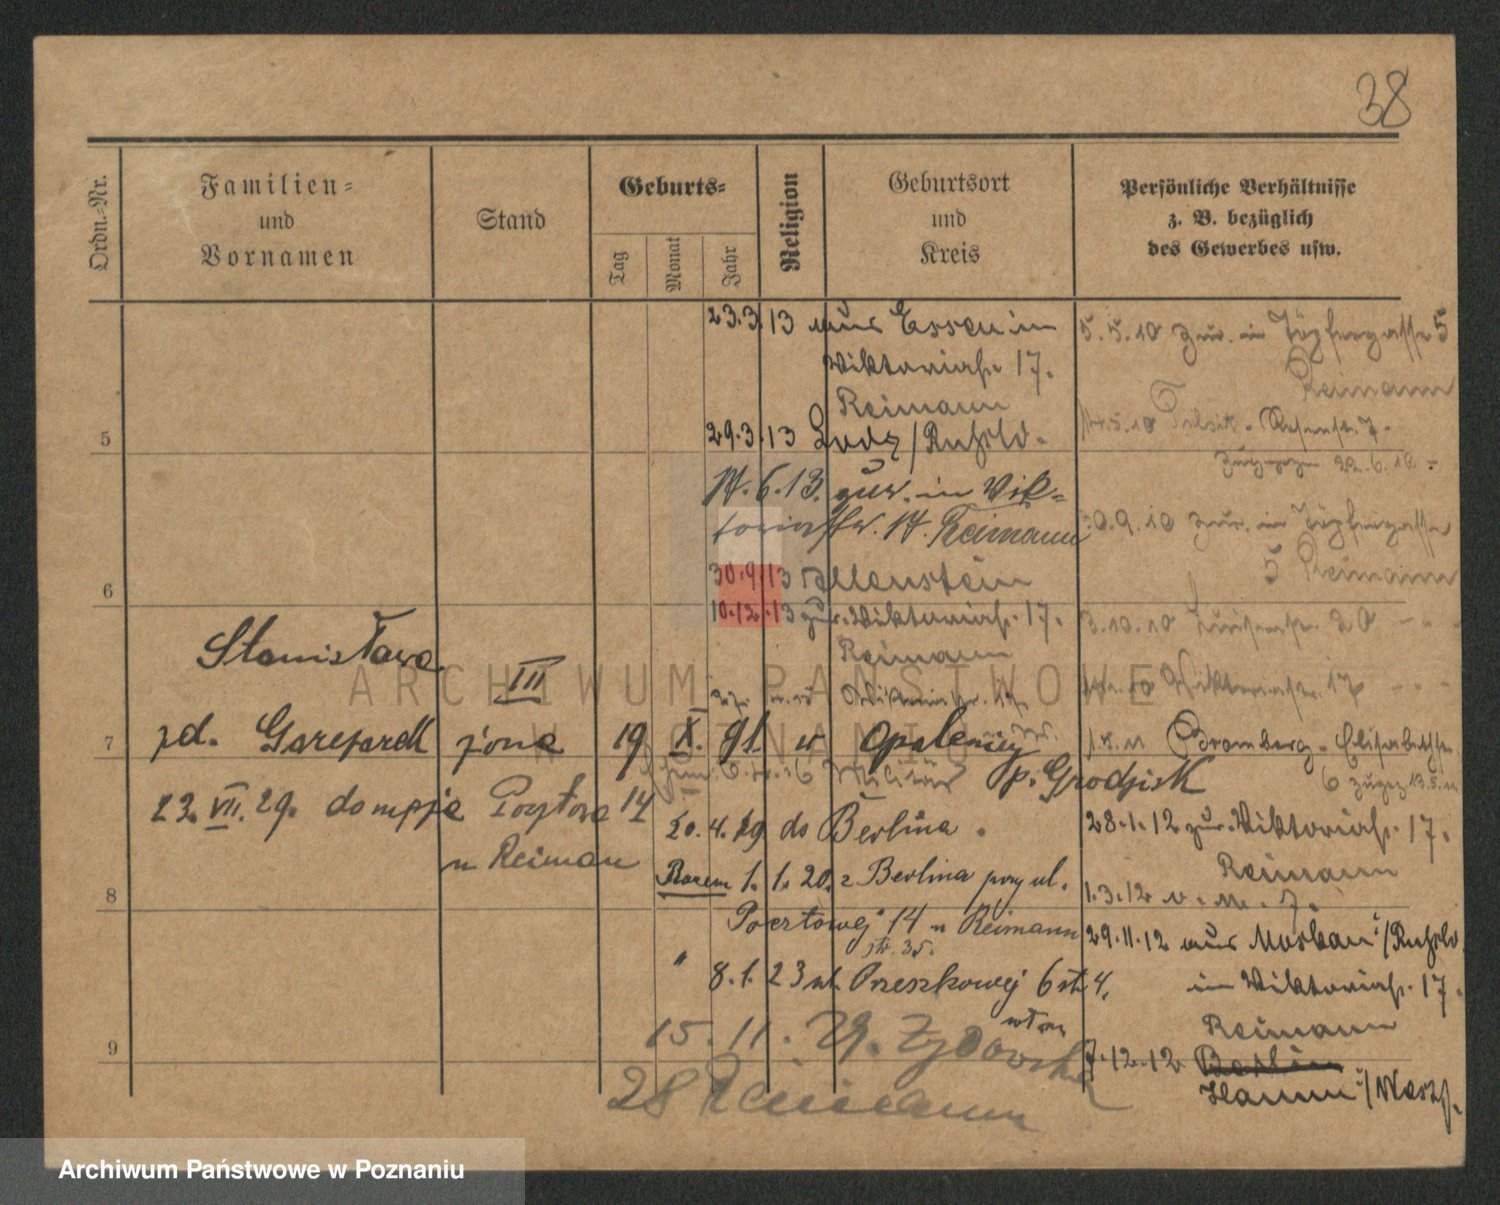 38
Ordn.-Nr.
Familien-
und
Vornamen
Stand
Geburts-
Tag
Monat
Jahr
Religion
Geburtsort
und
Kreis
Persönliche Verhältnisse
z. B. bezüglich
des Gewerbes usw.
23.3.13 aus Essen in
Viktoriastr. 17.
Reimann
5
29.3.13 Lodz / Rußld.
14.6.13. zur. in Vik-
toriastr. 17. Reimann
30.9.13 Allenstein
6
10.12.13 zur. Viktoriastr. 17.
Reimann
Stanisława
III
7
zd. żona 19 X. 91 w Opalenicy
p. Grodzisk
23. VII. 29. do
Pocztowa 14
u Reiman
20.4.19 do Berlina.
Razem 1.1.20. z Berlina przy ul.
8
Pocztowej 14 u Reimann
" 8.1.23 ul. 6 4.
9
15.11.29. Żydowska
28 Reimann
5.5.10 zur. in Töpfergasse 5
Reimann
14.5.10 Tilsit
22.6.10
30.9.10 zur. in Töpfergasse
5 Reimann
3.10.10 20
Viktoriastr. 17
Bromberg - Elisabethstr.
6 zugez. 13.5.11
28.1.12 zur. Viktoriastr. 17.
Reimann
1.3.12
29.11.12 aus Moskau / Rußld
in Viktoriastr. 17.
Reimann
7.12.12 Berlin
Hamm i/Westf.
ARCHIWUM PAŃSTWOWE
W POZNANIU
Archiwum Państwowe w Poznaniu